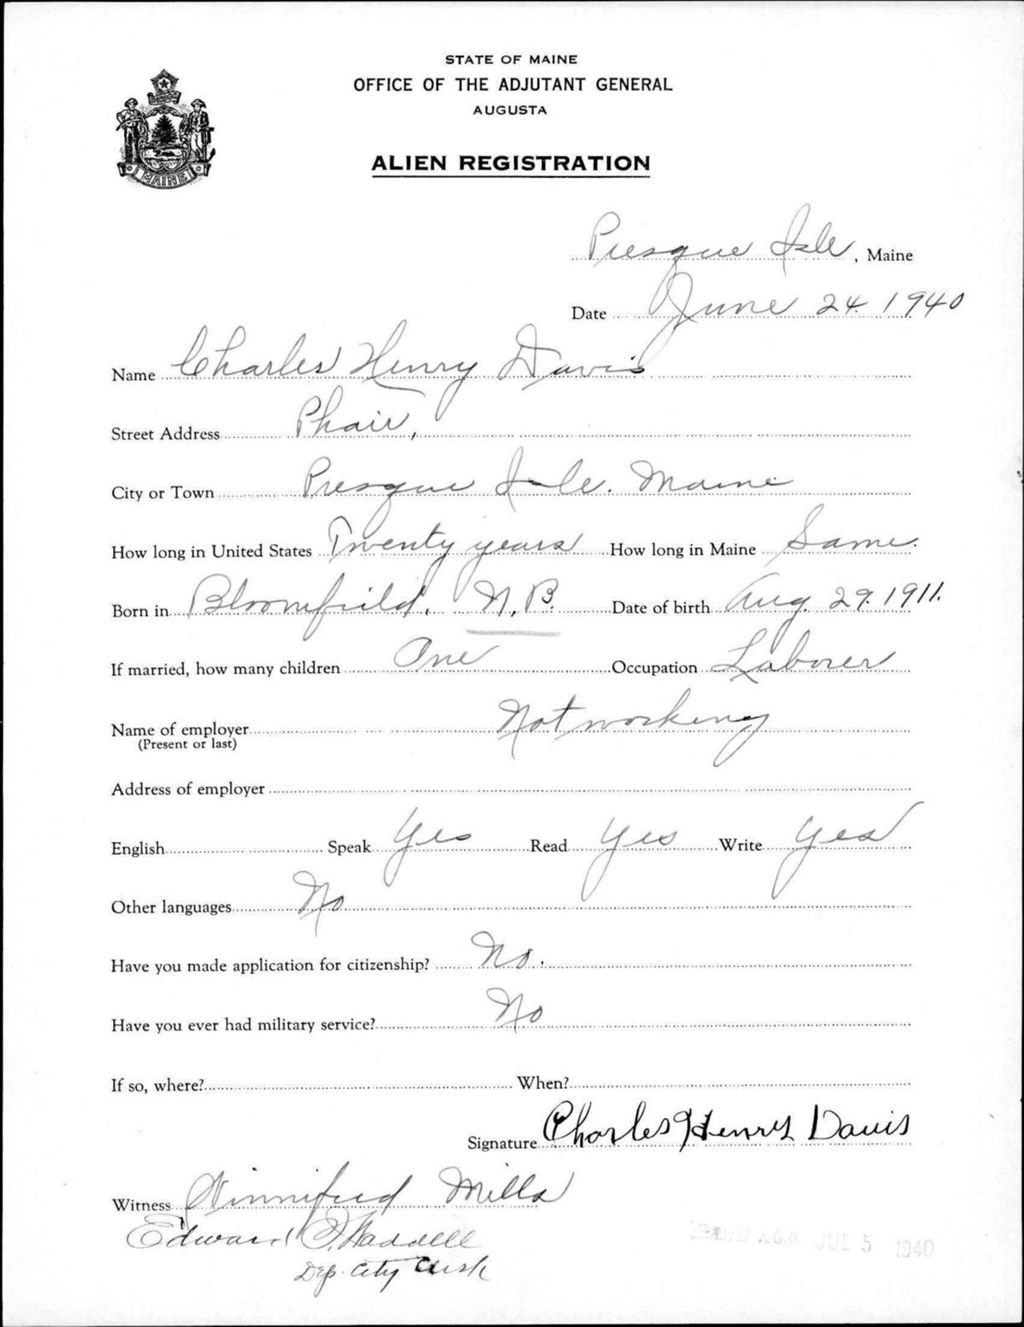 STATE OF MAINE
OFFICE OF THE ADJUTANT GENERAL
AUGUSTA
ALIEN REGISTRATION
MAINE
Presque Isle, Maine
Date June 24. 1940
Name Charles Henry Davis
Street Address Phair,
City or Town Presque Isle. Maine
How long in United States Twenty years How long in Maine Same.
Born in Bloomfield, N.B. Date of birth Aug. 29. 1911.
If married, how many children One Occupation Laborer
Name of employer Not working
(Present or last)
Address of employer
English Speak Yes Read Yes Write Yes
Other languages No
Have you made application for citizenship? No.
Have you ever had military service? No
If so, where? When?
Signature Charles Henry Davis
Witness Winnifred Mills
Edward Waddell
Dep. City Clerk
A.G.O. JUL 5 1940